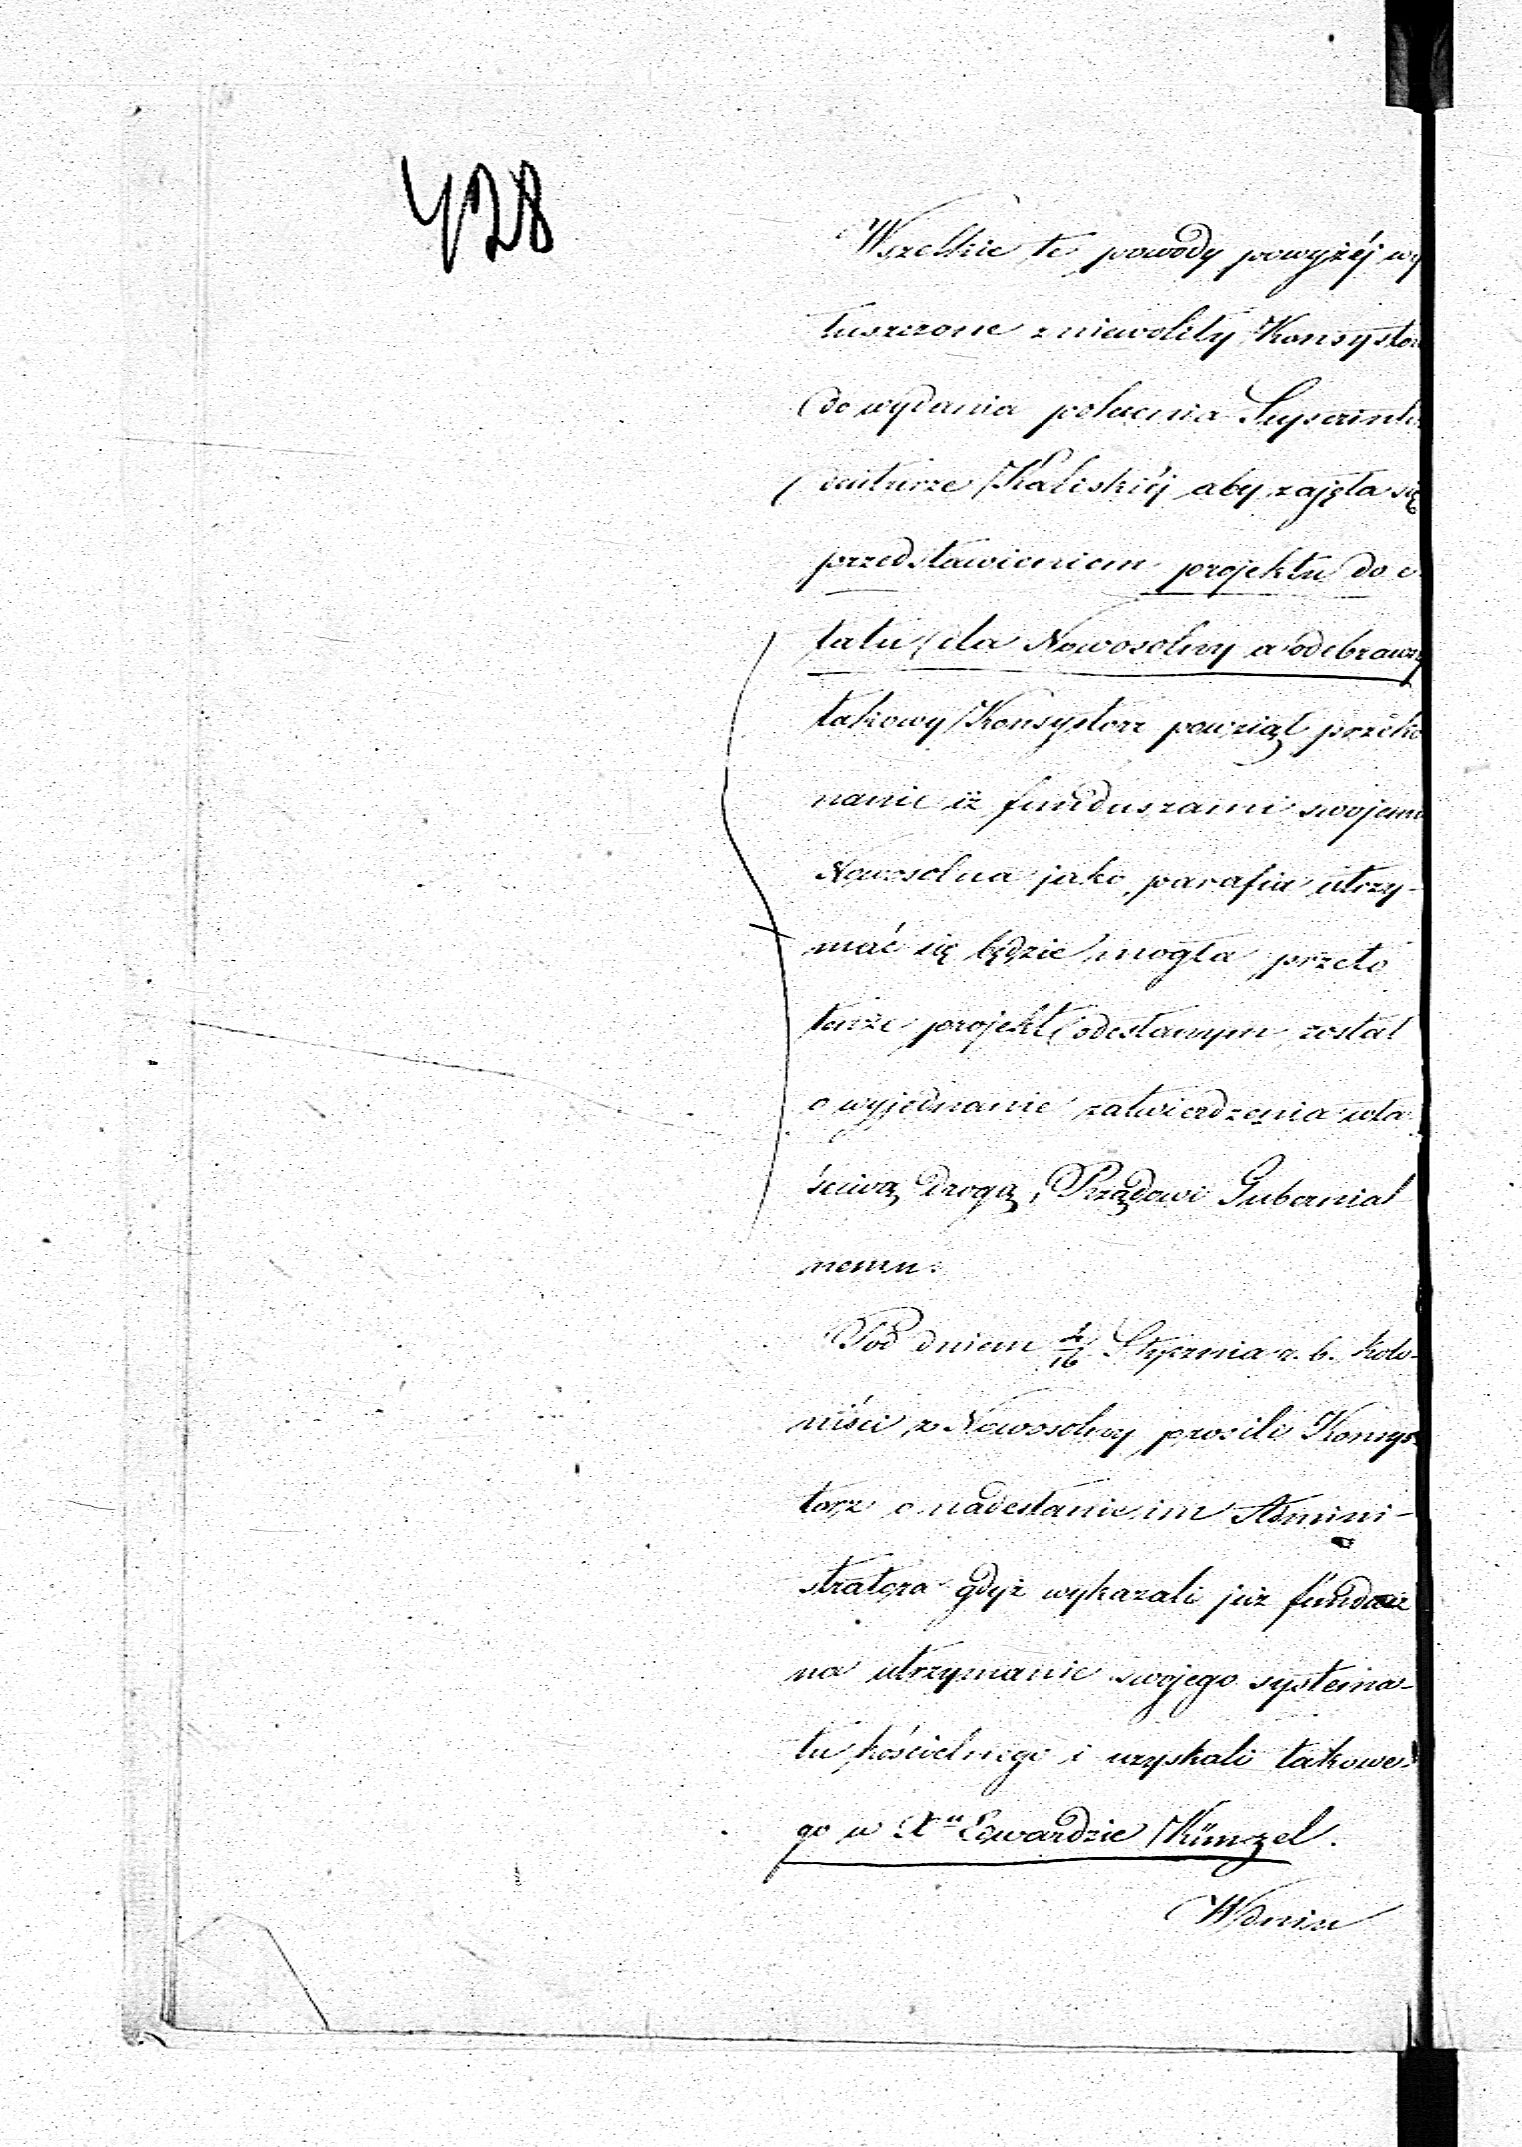 428
Wszelkie te powody powyżéj wy
łuszczone zniewoliły Konsystorz
do wydania polecenia Superinten
denturze Kaliskiéj aby zajęła się
przedstawieniem projektu do e
tatu dla Nowosolny a odebrawszy
takowy Konsystorz powziął przeko
nanie iż funduszami swojemi
Nowosolna jako parafia utrzy-
mać się będzie mogła przeto
tenże projekt odesłanym został
o wyjednanie zatwierdzenia wła
ściwą drogą, Rządowi Gubernial
nemu.
Pod dniem 4/16 Stycznia r. b. kolo-
niści z Nowosolny prosili Konsys-
torz o nadesłanie im Admini-
stratora gdyż wykazali już fundusz
na utrzymanie swojego systema-
tu kościelnego i uzyskali takowe-
go w X. Edwardzie Künzel.
W dniu